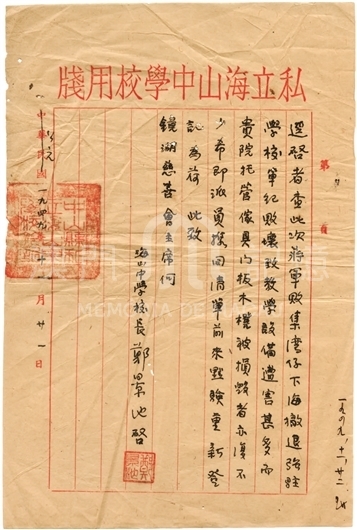 私立海山中學校用牋
第 頁
逕啓者查此次蔣軍敗集灣仔下海撤退強駐
學校軍紀敗壞致教學設備遭害甚多而
貴院托管傢具內板木櫈被損毀者亦復不
少希即派員換回清單前來點驗重新登
記為荷 此致
鏡湖慈善會主席何
海山中學校長鄭 啓
公元一九四九年十一月廿一日
一九四九、十一、廿二
MEMÓRIA DE MACAU